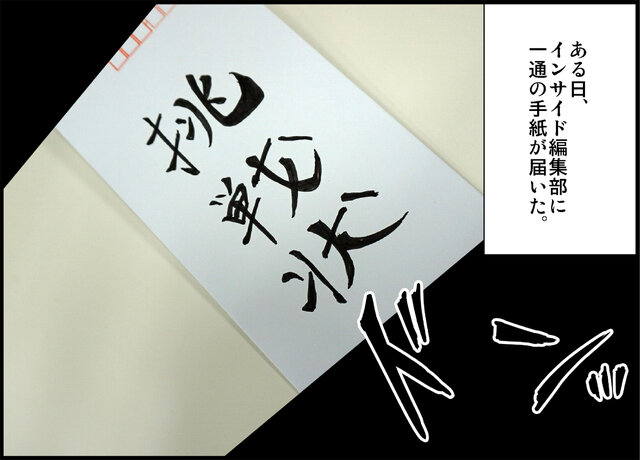 ある日、
インサイド編集部に
一通の手紙が届いた。
挑戦状
ズンッ